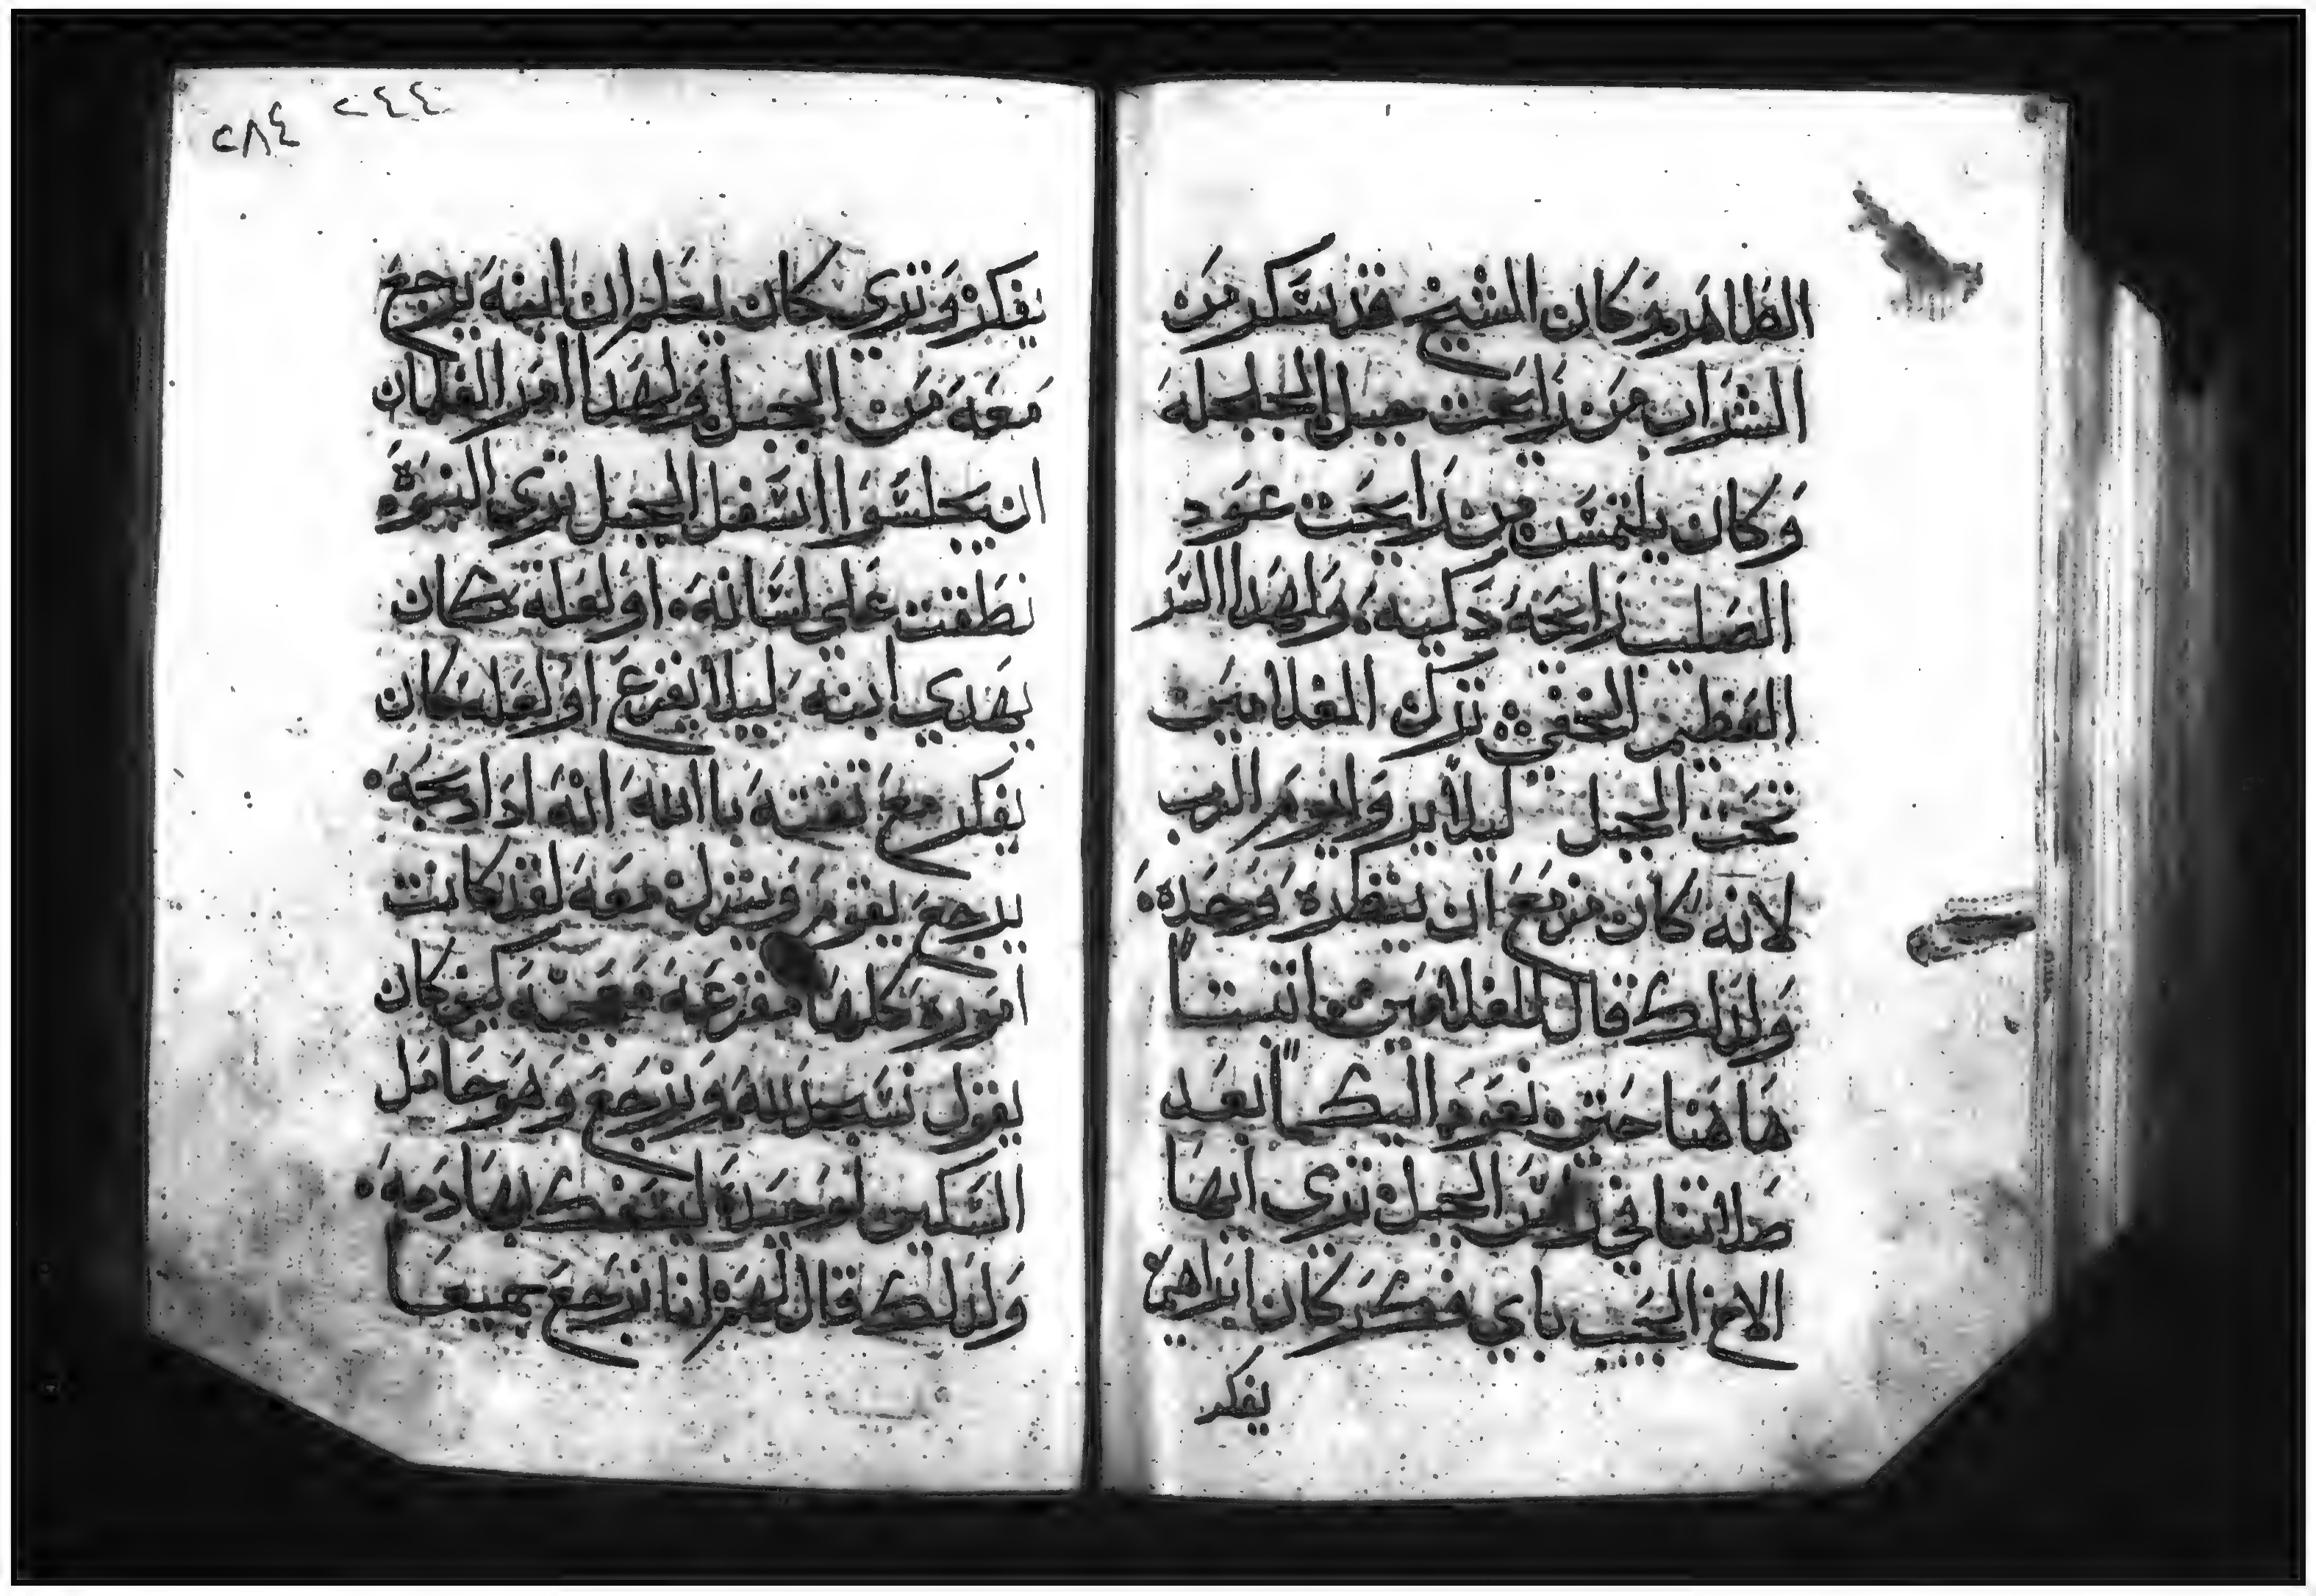 الطاهر وكان الشيخ قد سكر من
الشراب من رايحت جبل الجلجله
وكان يلتمس من رايحت عود
الصليب رايحه دكيه ولهدا السر
العظيم الخفي ترك الغلامين
تحت الجبل ليلا يروا يوم الرب
لانه كان مزمع ان ينظره وحده
ولذلك قال للغلامين وانتما
هاهنا حتي نعود اليكما بعد
صلاتنا في راس الجبل تري ايها
الاخ الحبيب باي فكر كان ابراهيم
يفكر
٢٤٤
٢٨٤
يفكر وتري كان يعلم ان ابنه يرجع
معه من الجبل ولهدا امر الغلمان
ان يجلسوا اسفل الجبل تري النبوة
نطقت علي لسانه او لعله كان
يهدي ابنه ليلا يفزع او لعله كان
يفكر مع ثقته باالله انه ادا دبحه
يرجع يقوم وينزل معه لقد كانت
اموره كلها مفزعه عجيبه كيف كان
يقول نسجد لله ونرجع وهو حامل
السكين لوحيده ليسفك بها دمه
ولذلك قال لهم انا نرجع جميعا